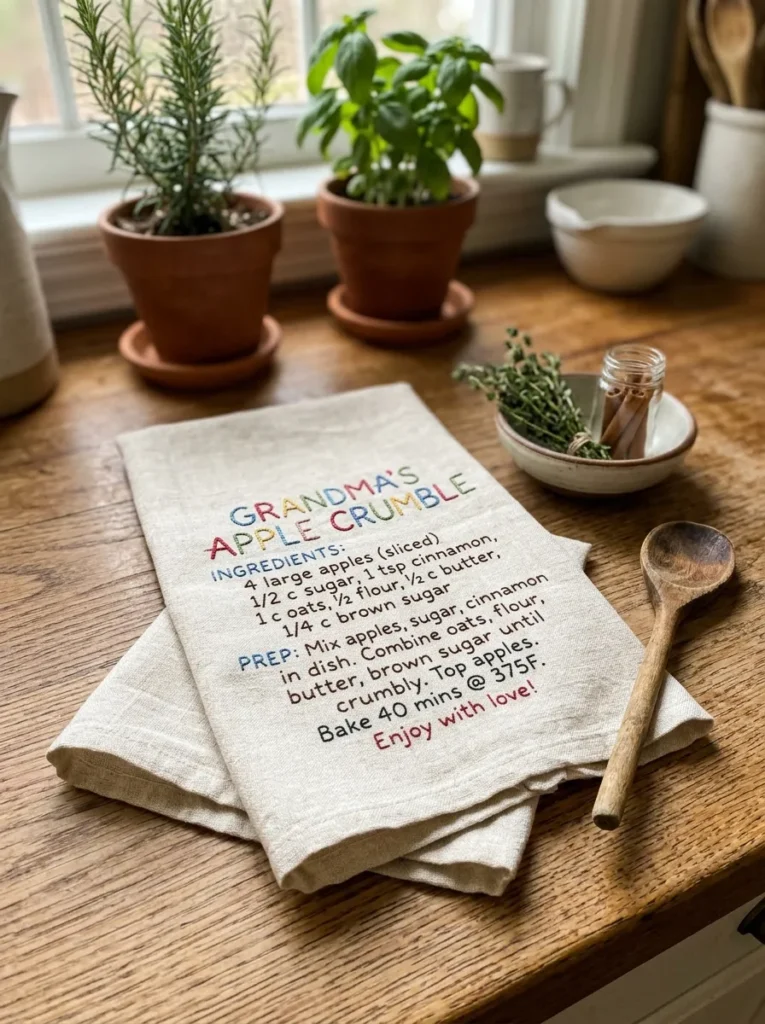 GRANDMA'S
APPLE CRUMBLE
INGREDIENTS:
4 large apples (sliced)
1/2 c sugar, 1 tsp cinnamon,
1 c oats, ½ flour, ½ c butter,
1/4 c brown sugar
PREP: Mix apples, sugar, cinnamon
in dish. Combine oats, flour,
butter, brown sugar until
crumbly. Top apples.
Bake 40 mins @ 375F.
Enjoy with love!